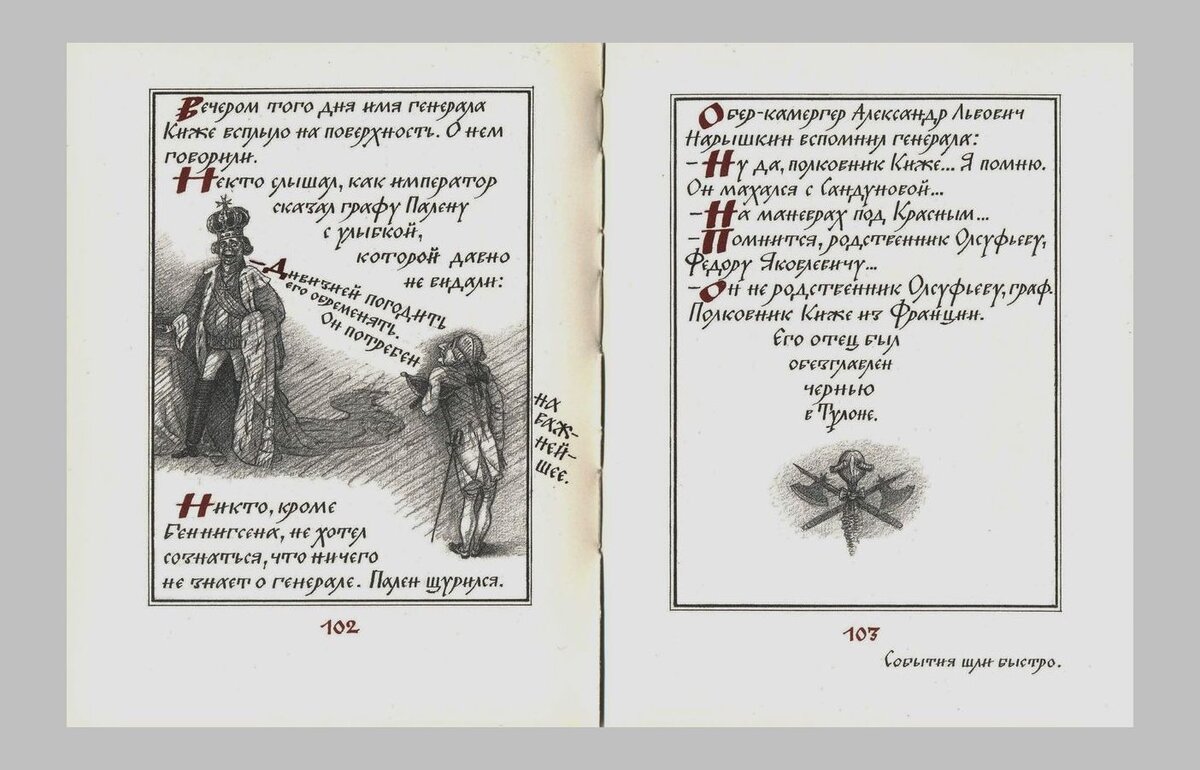 Вечером того дня имя генерала
Киже всплыло на поверхность. О нем
говорили.
Некто слышал, как император
сказал графу Палену
с улыбкой,
которой давно
не видали:
–Дивизией погодить
его обременять.
Он потребен
на
важ-
ней-
шее.
Никто, кроме
Беннигсена, не хотел
сознаться, что ничего
не знает о генерале. Пален щурился.
102
Обер-камергер Александр Львович
Нарышкин вспомнил генерала:
–Ну да, полковник Киже... Я помню.
Он махался с Сандуновой...
–На маневрах под Красным...
–Помнится, родственник Олсуфьеву,
Федору Яковлевичу...
–Он не родственник Олсуфьеву, граф.
Полковник Киже из Франции.
Его отец был
обезглавлен
чернью
в Тулоне.
103
События шли быстро.